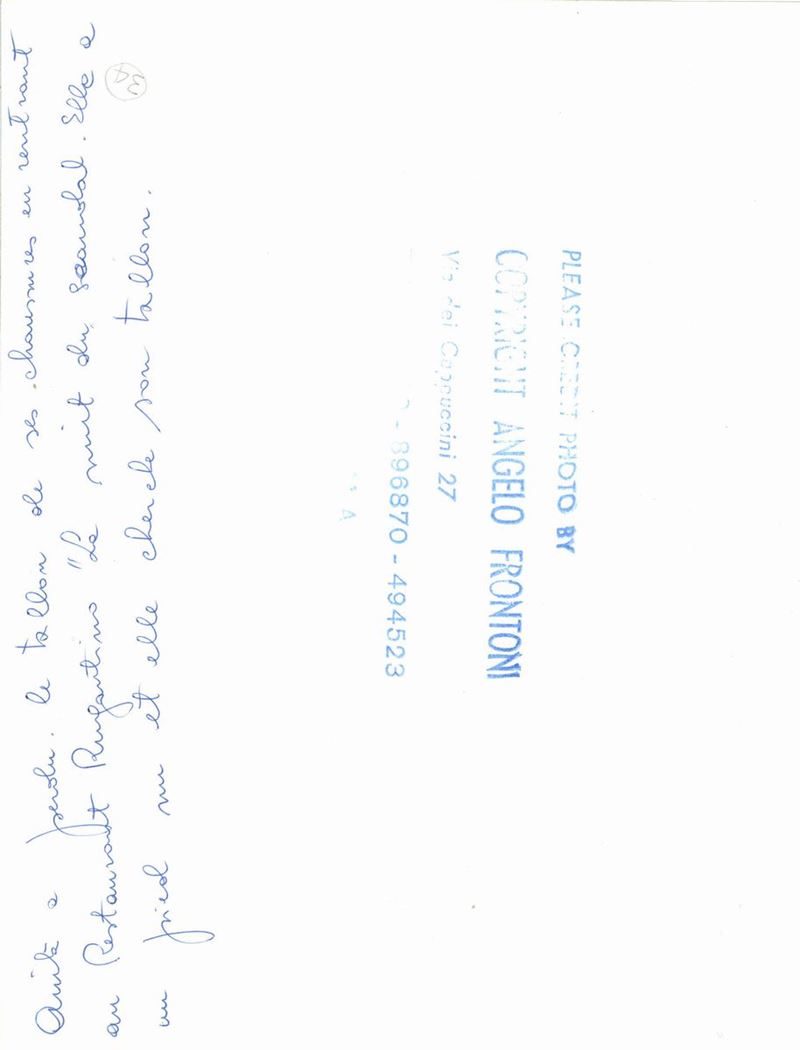 Anita a perdu le tallon de ses chaussures en rentrant
au Restaurant Rugantino "La nuit du scandal. Elle a
un pied nu et elle cherche son tallon.
PLEASE CREDIT PHOTO BY
COPYRIGHT ANGELO FRONTONI
Via dei Cappuccini 27
- 896870 - 494523
A